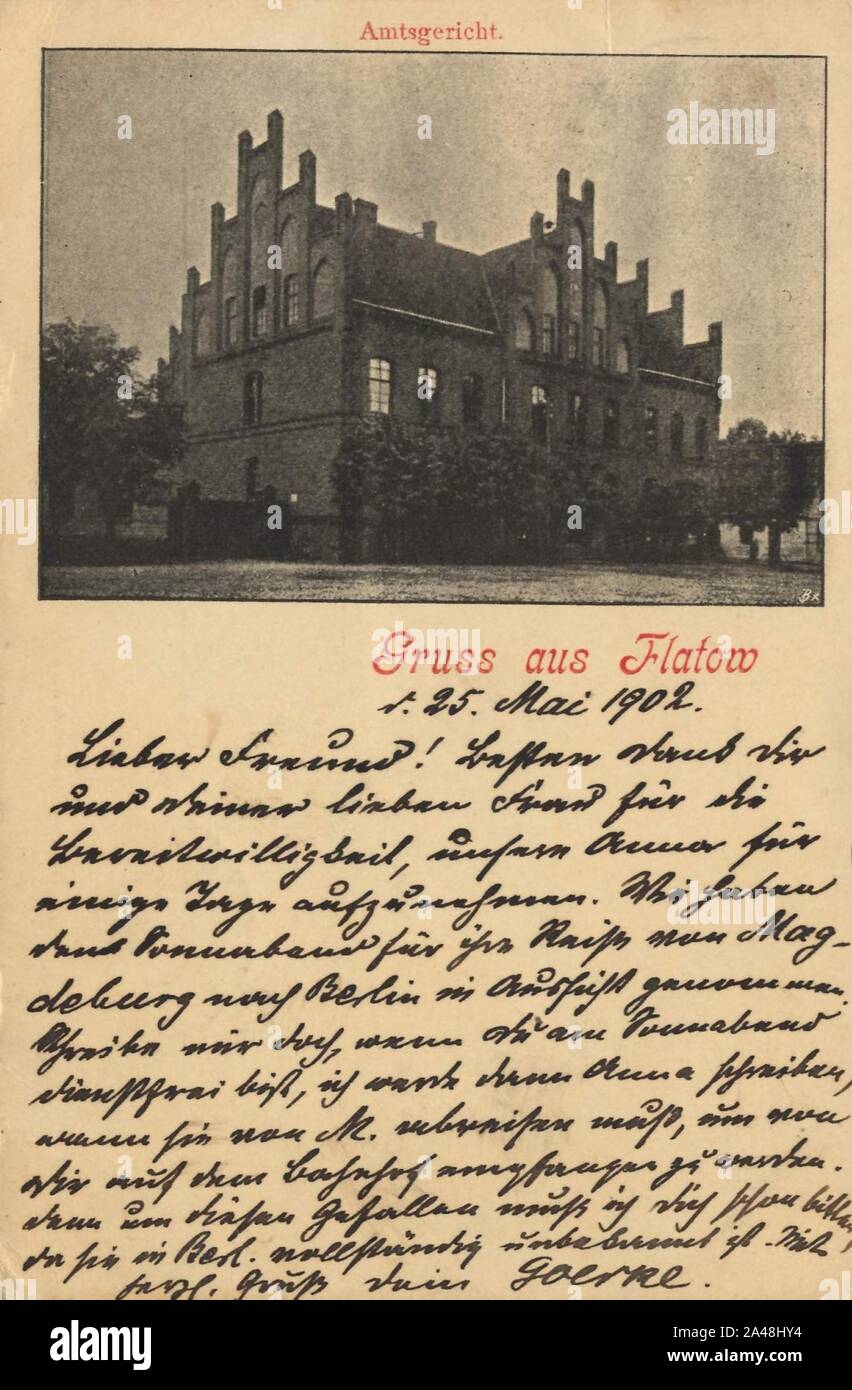 Amtsgericht.
Bx
Gruss aus Flatow
d. 25. Mai 1902.
Lieber Freund! Besten Dank Dir
und Deiner lieben Frau für die
Bereitwilligkeit, unsere Anna für
einige Tage aufzunehmen. Wir haben
den Sonnabend für ihre Reise von Mag-
deburg nach Berlin in Aussicht genommen.
Schreibe mir doch, wenn Du am Sonnabend
dienstfrei bist, ich werde dann Anna schreiben,
wann sie von M. abreisen muß, um von
Dir auf dem Bahnhof empfangen zu werden.
denn um diesen Gefallen muß ich Dich schon bitten,
da sie in Berl. vollständig unbekannt ist. Mit
herzl. Gruß Dein Goerke.
a
alamy
alamy
Image ID: 2A48HY4
www.alamy.com